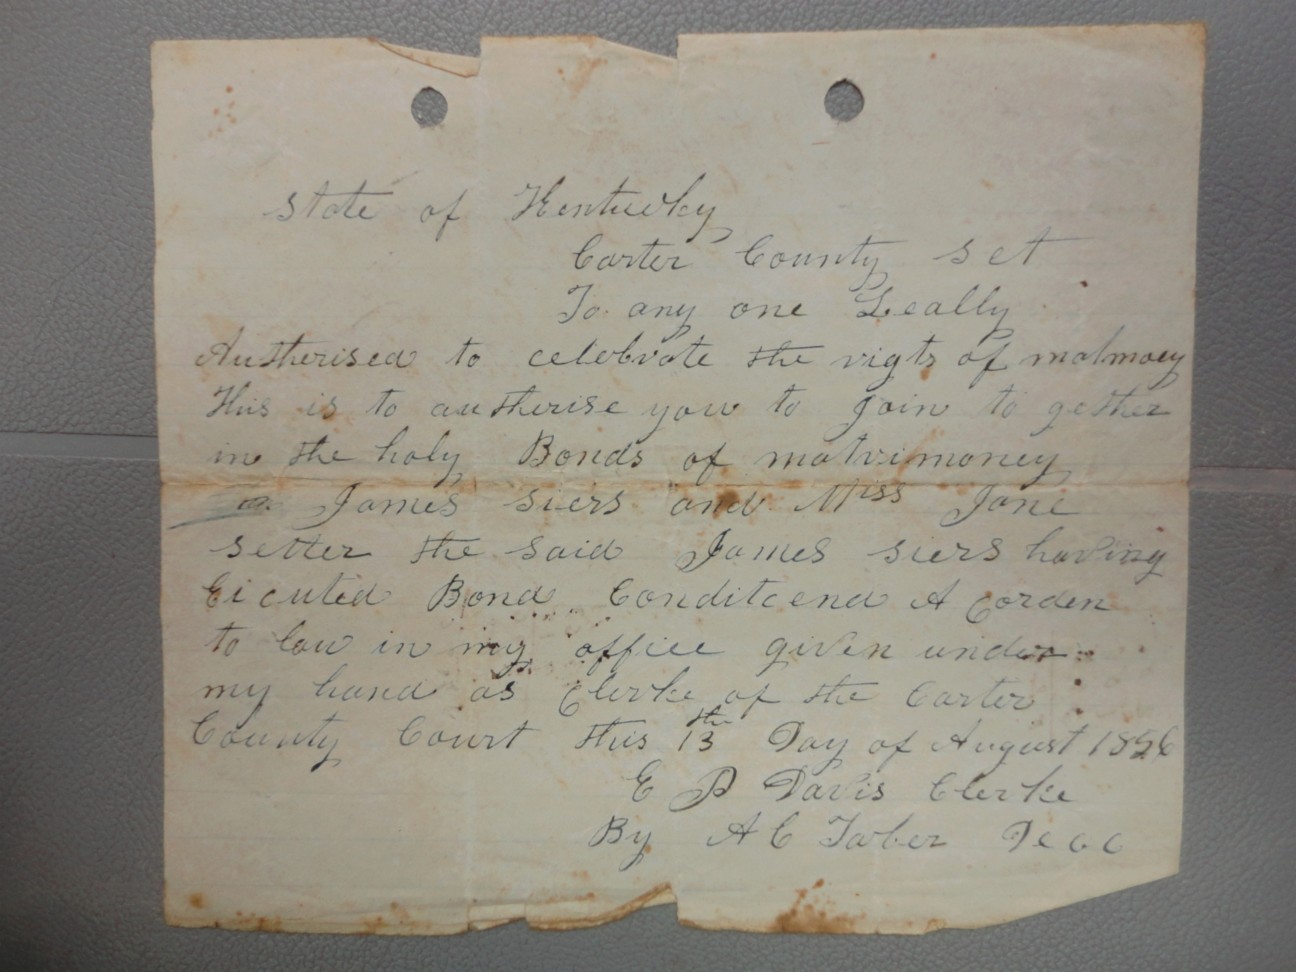 State of Kentucky
Carter County Sct
To any one Leally
Autherised to celebrate the rigts of matmoey
This is to autherise you to join to gether
in the holy Bonds of matrimoney
James Siers and Miss Jane
Setter the Said James Siers having
Eicuted Bond Conditcend A Corden
to law in my office given under
my hand as Clerke of the Carter
County Court this 13th Day of August 1856
E P Davis Clerke
By A C Tarber